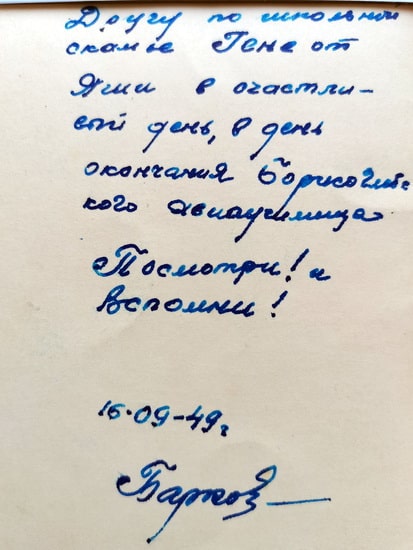 Другу по школьной
скамье Гене от
Яши в счастли-
вый день, в день
окончания Борисоглебс-
кого авиаучилища
Посмотри! и
вспомни!
15-09-49г